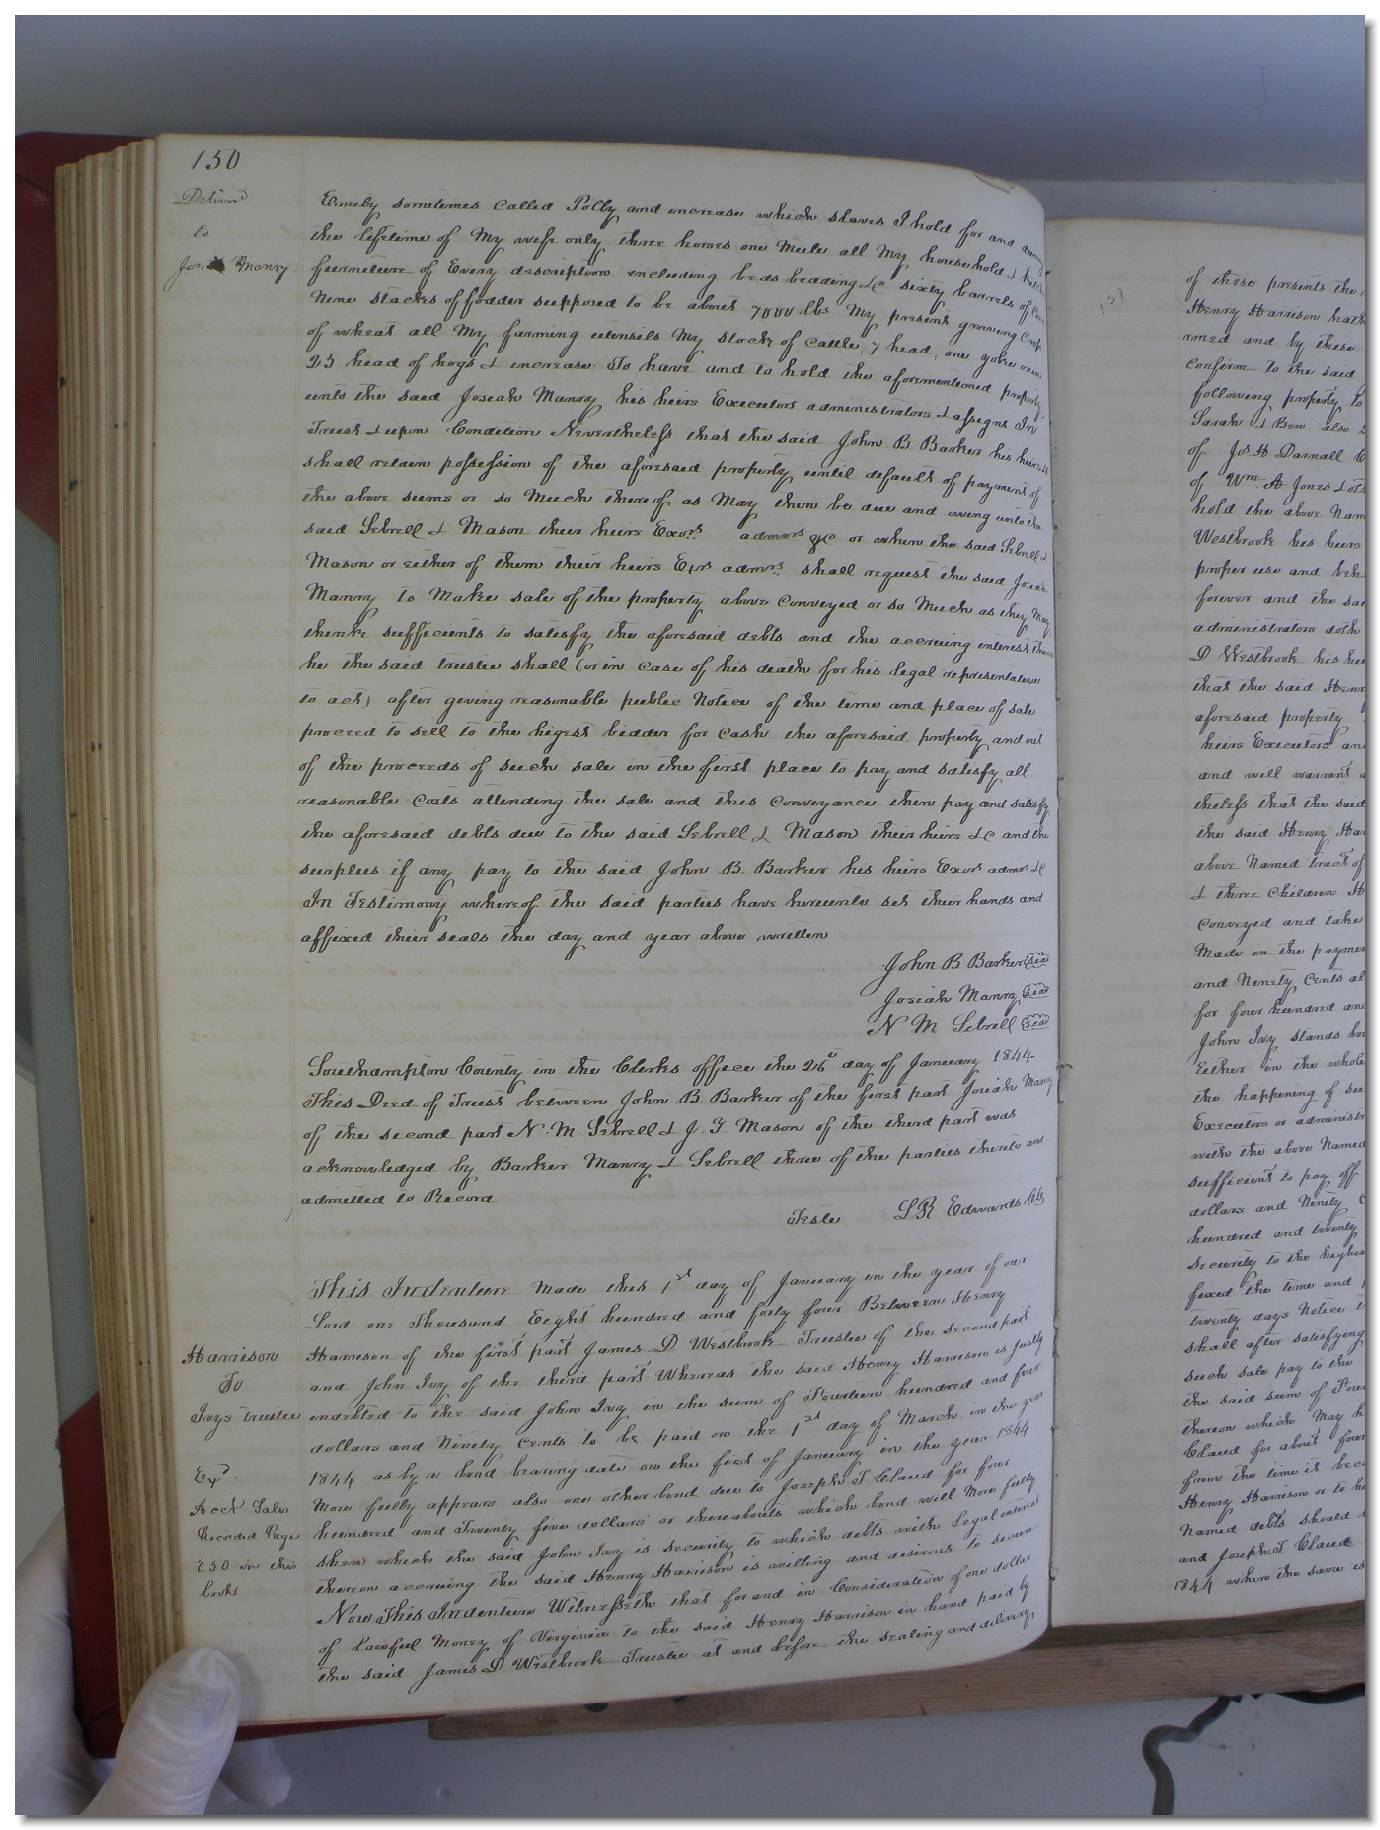 150
Deliverd
to
Josiah Manry
Emely sometimes called Polly and increase which slaves I hold for and during
the lifetime of My wife only three horses one Mule all My household & kitchen
furniture of Every description including beds beading &c sixty barrels of Corn
Nine stacks of fodder supposed to be about 7000 lbs My present growing Crop
of wheat all My farming utensils My stock of cattle 7 head, one yoke oxen
25 head of hogs & increase To have and to hold the aforementioned property
unto the said Josiah Manry his heirs Executors administrators & assigns In
Trust & upon Condition Nevertheless that the said John B. Barker his heirs &c
shall retain possession of the aforesaid property until default of payment of
the above sums or so Much thereof as May then be due and owing unto the
said Sebrell & Mason their heirs Exors admors &c or when the said Sebrell &
Mason or either of them their heirs Exrs admrs shall request the said Josiah
Manry to Make sale of the property above Conveyed or so Much as they May
think sufficients to satisfy the aforesaid debts and the accruing interest
he the said trustee shall (or in case of his death for his legal representative
to act) after giving reasonable public Notice of the time and place of sale
proceed to sell to the higest bidder for cash the aforesaid property and out
of the proceeds of such sale in the first place to pay and satisfy all
reasonable Costs attending the sale and this Conveyance then pay and satisfy
the aforesaid debts due to the said Sebrell & Mason their heirs &c and the
surplus if any pay to the said John B. Barker his heirs Exors admrs &c
In Testimony whereof the said parties have hereunto set their hands and
affixed their seals the day and year above written
John B Barker Seal
Josiah Manry Seal
N M Sebrell Seal
Southampton County in the Clerks office the 26th day of January 1844
This Deed of Trust between John B Barker of the first part Josiah Manry
of the second part N. M Sebrell & J. G Mason of the third part was
acknowledged by Barker Manry & Sebrell three of the parties thereto and
admitted to Record
Teste L R Edwards Clk
This Indenture Made this 1st day of January in the year of our
Lord one Thousand Eight hundred and forty four Between Henry
Harrison
To
Ivys trustee
Harrison of the first part James D Westbrook Trustee of the second part
and John Ivy of the third part Whereas the said Henry Harrison is justly
indebted to the said John Ivy in the sum of Fourteen hundred and four
dollars and Ninety Cents to be paid on the 1st day of March in the year
Exd
Acct Sales
Recorded Page
250 in this
book
1844 as by a bond bearing date on the first of January in the year 1844
More fully appears also one other bond due to Joseph T Claud for four
hundred and Twenty five dollars or thereabouts which bond will More fully
shew which the said John Ivy is security to which debts with legal interest
thereon accruing the said Henry Harrison is willing and desirous to secure
Now This Indenture Witnesseth that for and in Consideration of one dollar
of lawful Money of Virginia to the said Henry Harrison in hand paid by
the said James D Westbrook Trustee at and before the sealing and delivery
151
of these presents the
Henry Harrison hath
and by these
confirm to the said
following property to
Sarah & Ben also
of Jos. H. Darnall
of Wm. A Jones &
hold the above Nam
Westbrook his heirs
proper use and
forever and the
administrators doth
D Westbrook his
that the said Henr
aforesaid property
heirs Executors an
and will warrant
theless that the said
the said Henry Har
above Named tract of
& three Children
Conveyed and take
Made in the paymen
and Ninety Cents
for four hundred and
John Ivy stands
Either in the whole
the happening of
Executors or administr
with the above Named
sufficient to pay off
dollars and Ninety
hundred and twenty
security to the highes
fixed the time and
twenty days Notice
shall after satisfying
such sale pay to the
the said sum of Four
thereon which May
Claud for about four
from the time it
Henry Harrison or to
Named debts should
and Joseph T Claud
1844 when the same is